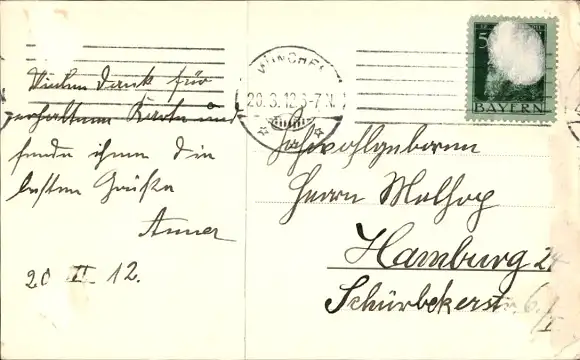 Vielen Dank für
erhaltene Karte und
sende ihnen die
besten Grüße
Anner
20 II. 12.
MÜNCHEN
20.3.12 6-7 N.
5
BAYERN
Hochwohlgeboren
Herrn
Hamburg 24
Schürbekerstr. 6/I